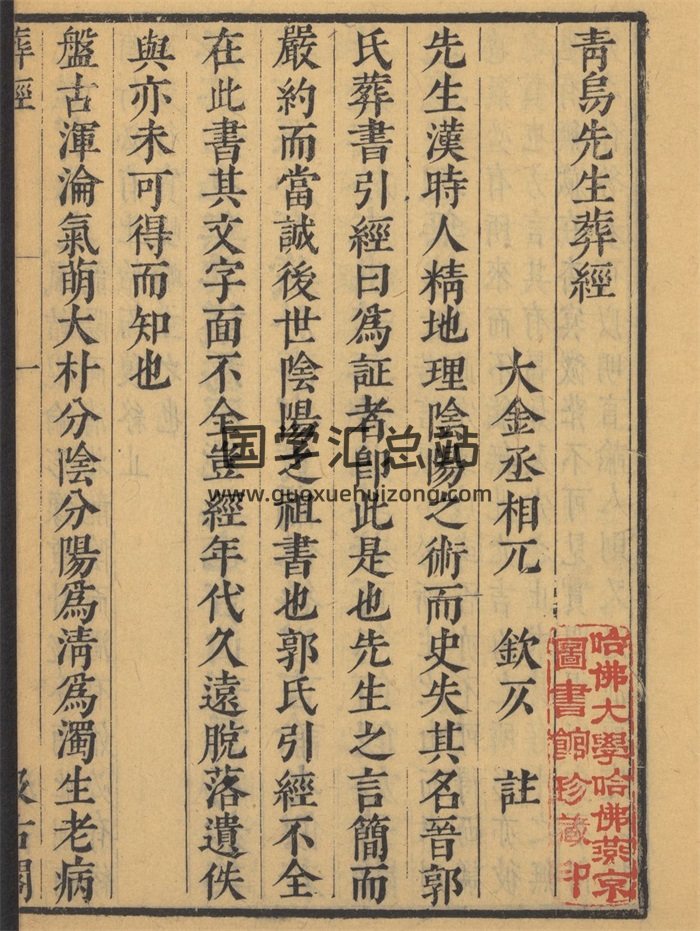 青烏先生葬經
大金丞相兀　欽仄　註
先生漢時人精地理陰陽之術而史失其名晉郭
氏葬書引經曰爲証者卽此是也先生之言簡而
嚴約而當誠後世陰陽之祖書也郭氏引經不全
在此書其文字面不全豈經年代久遠脫落遺佚
與亦未可得而知也
盤古渾淪氣萌大朴分陰分陽爲淸爲濁生老病
葬經
一
汲古閣
哈佛大學哈佛燕京
圖書館珍藏印
国学汇总站
www.guoxuehuizong.com